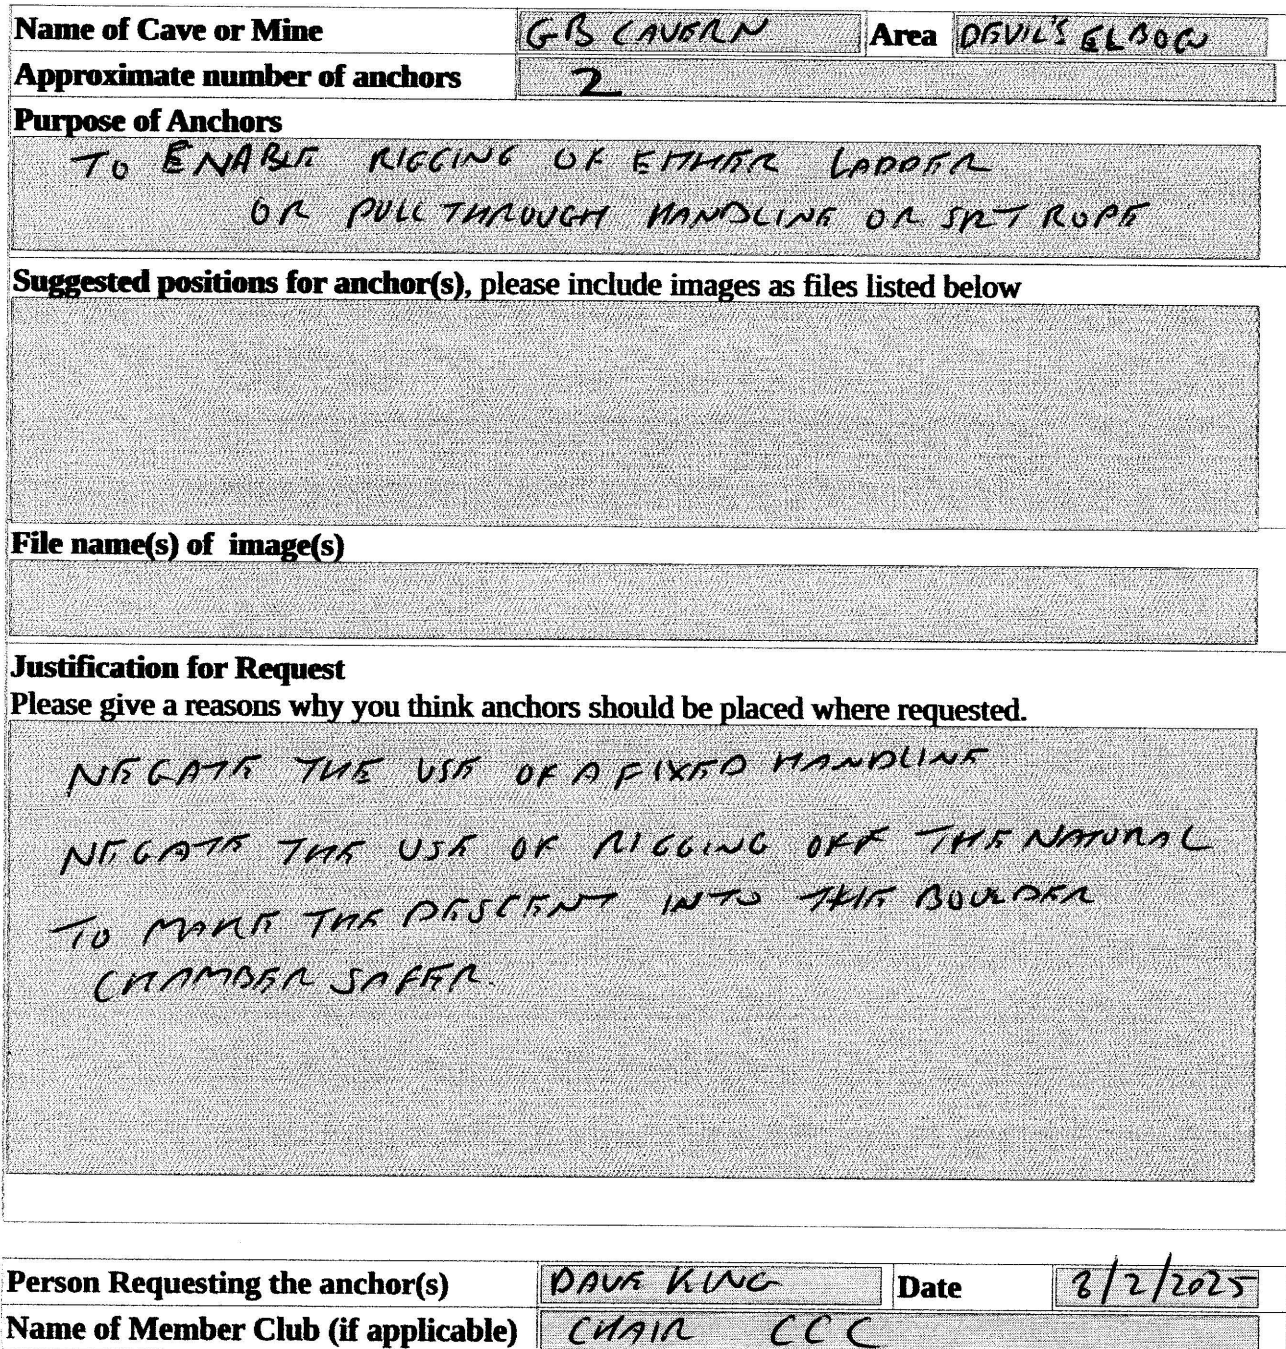 Name of Cave or Mine GB CAVERN Area DEVIL'S ELBOW
Approximate number of anchors 2
Purpose of Anchors
TO ENABLE RIGGING OF EITHER LADDER
OR PULL THROUGH HANDLINE OR SRT ROPE
Suggested positions for anchor(s), please include images as files listed below
File name(s) of image(s)
Justification for Request
Please give a reasons why you think anchors should be placed where requested.
NEGATE THE USE OF A FIXED HANDLINE
NEGATE THE USE OF RIGGING OFF THE NATURAL
TO MAKE THE DESCENT INTO THE BOULDER
CHAMBER SAFER.
Person Requesting the anchor(s) DAVE KING Date 8/2/2025
Name of Member Club (if applicable) CHAIR CCC